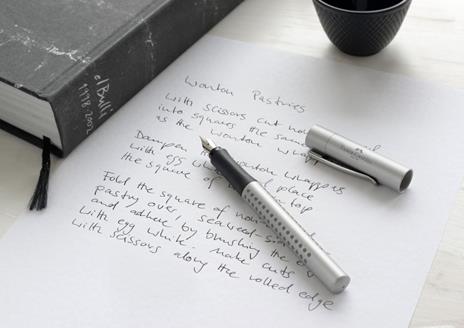 elBulli
1998-2002
Wonton Pastries
With scissors cut nori
into squares the same
as the wonton wrapp
Dampen wonton wrappers
with egg place
the square of top
Fold the square of
pastry over, seaweed-
and adhere by brushing the
with egg white. Make cuts
with scissors along the rolled edge